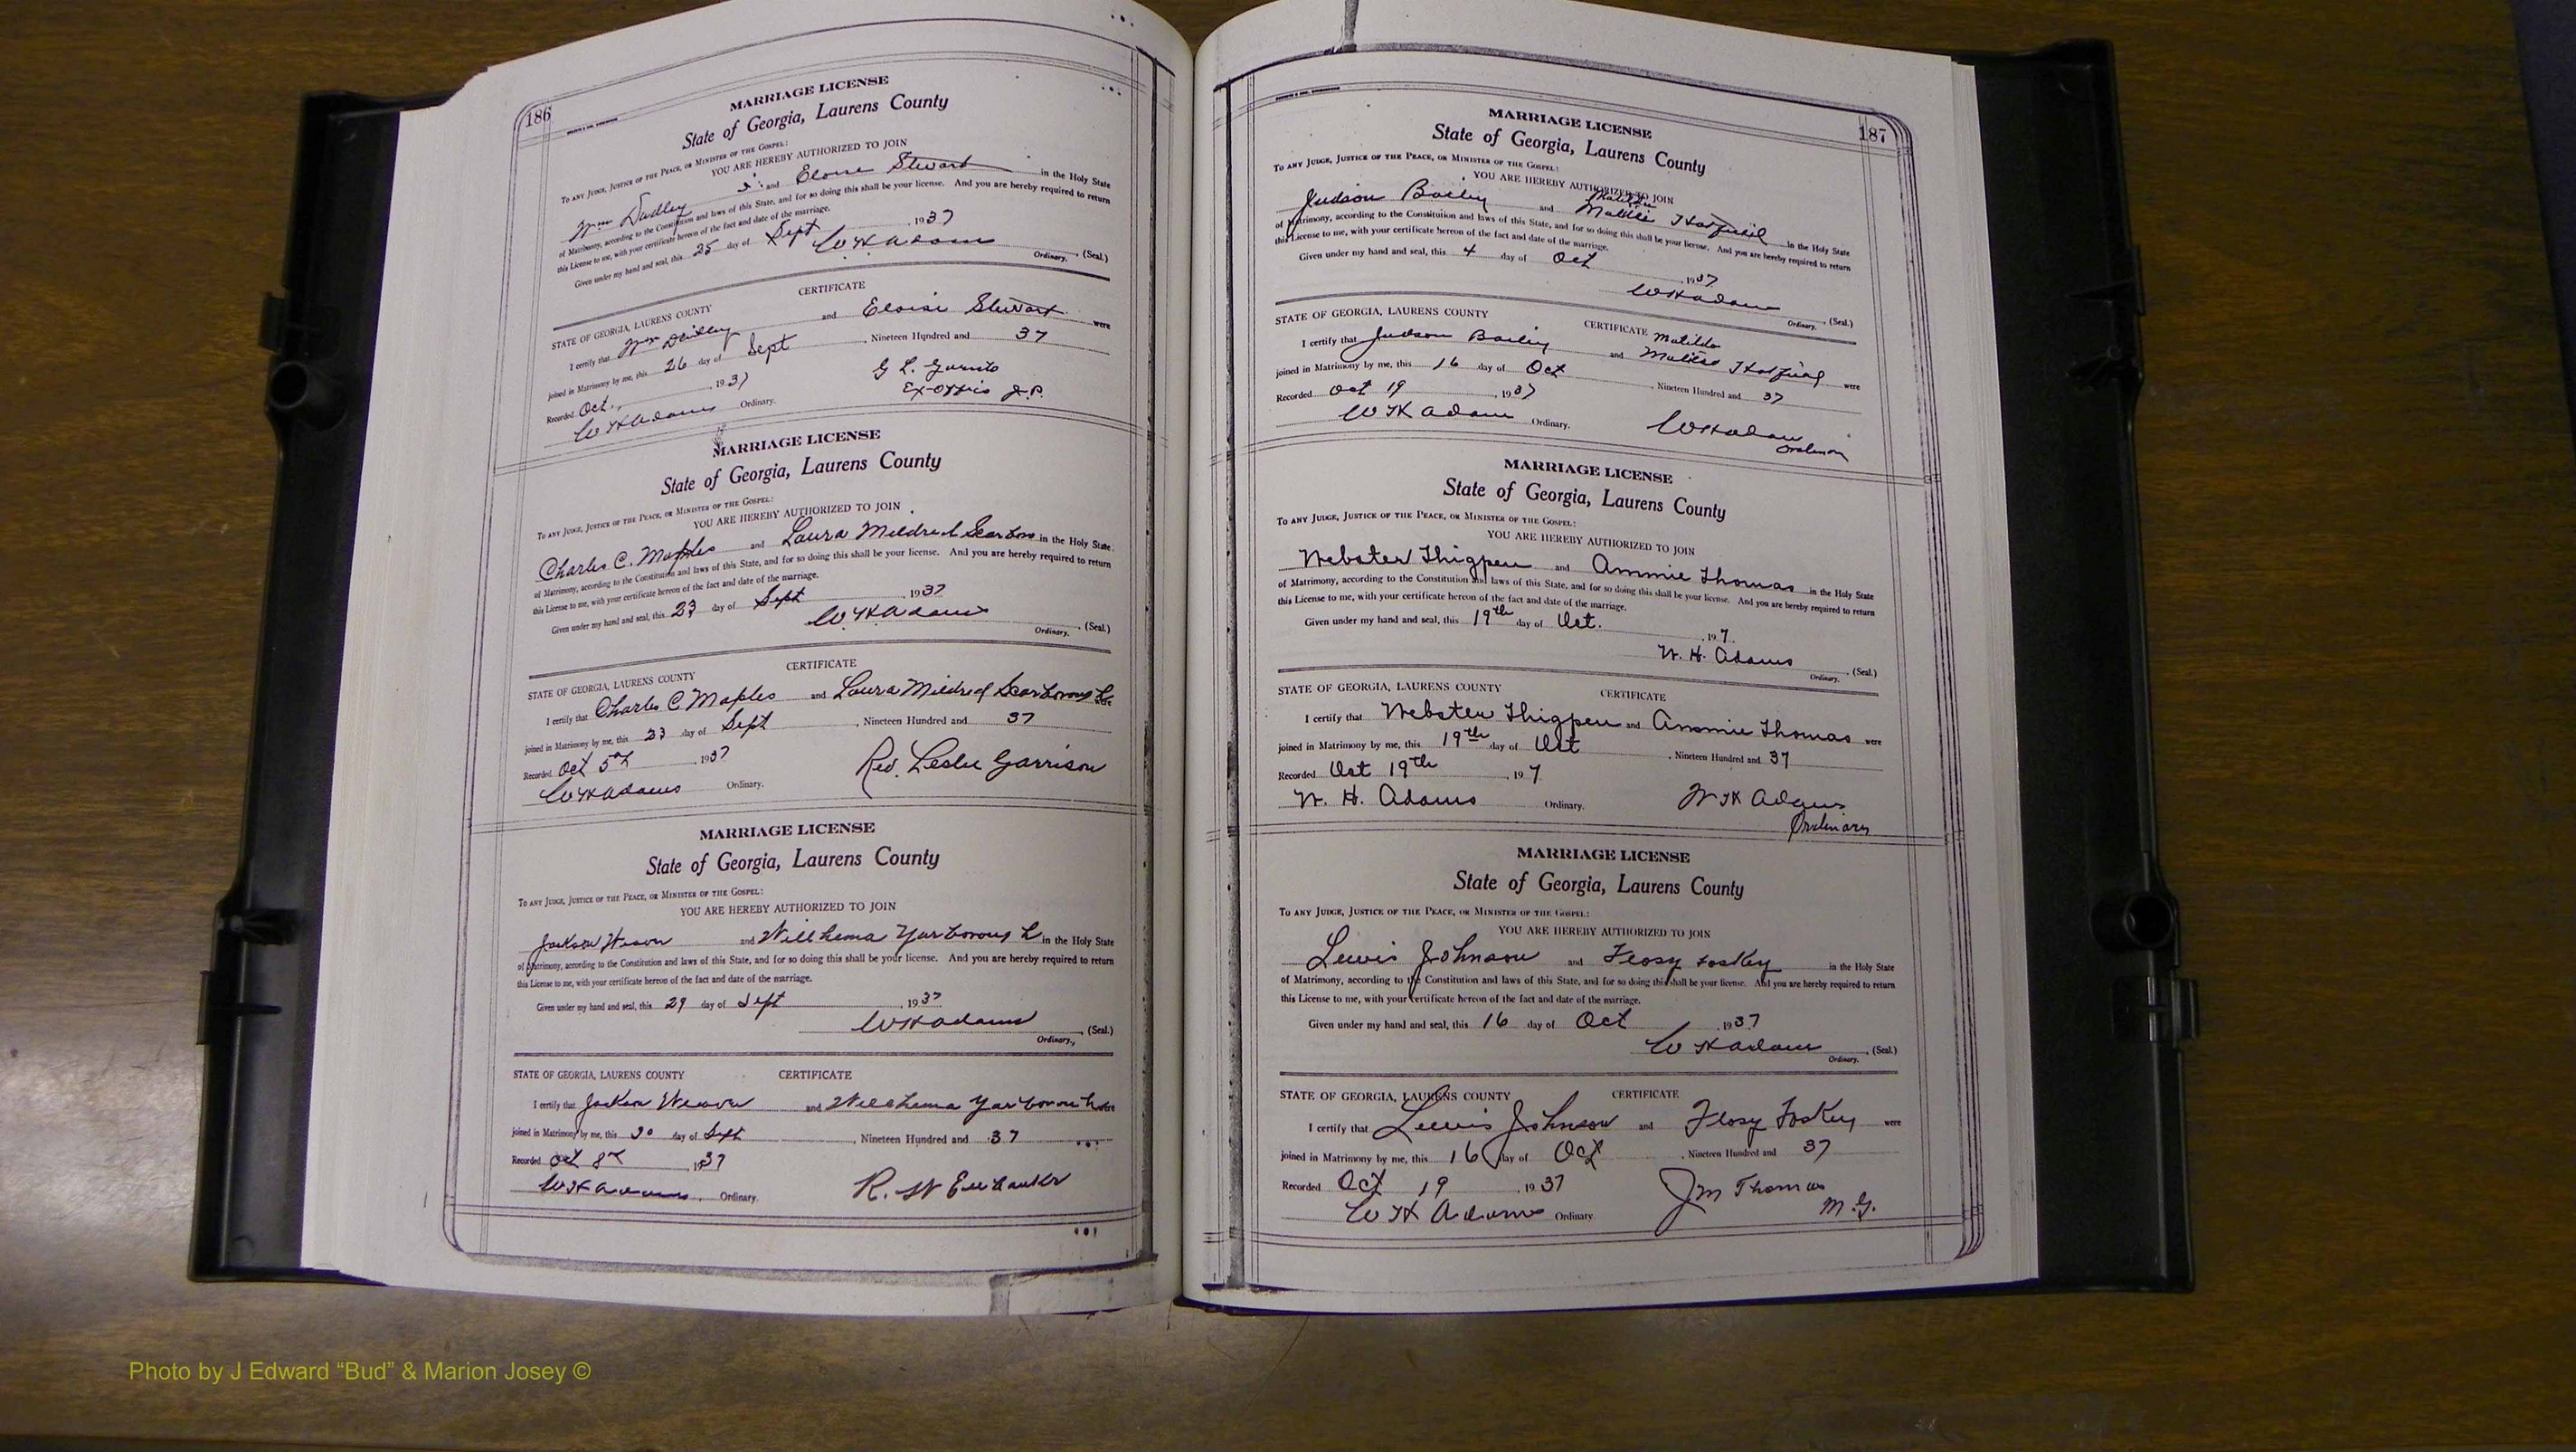 186
MARRIAGE LICENSE
State of Georgia, Laurens County
To any Judge, Justice of the Peace, or Minister of the Gospel:
YOU ARE HEREBY AUTHORIZED TO JOIN
Wm Dudley and Eloise Stewart in the Holy State
of Matrimony, according to the Constitution and laws of this State, and for so doing this shall be your license. And you are hereby required to return
this License to me, with your certificate hereon of the fact and date of the marriage.
Given under my hand and seal, this 25 day of Sept 1937
W H Adams
Ordinary. (Seal.)
CERTIFICATE
STATE OF GEORGIA, LAURENS COUNTY
I certify that Wm Dudley and Eloise Stewart were
joined in Matrimony by me, this 26 day of Sept, Nineteen Hundred and 37
Recorded Oct., 1937 G L.
W H Adams Ordinary. Ex-officio J.P.
MARRIAGE LICENSE
State of Georgia, Laurens County
To any Judge, Justice of the Peace, or Minister of the Gospel:
YOU ARE HEREBY AUTHORIZED TO JOIN
Charles C. Maples and Laura Mildred Scarboro in the Holy State
of Matrimony, according to the Constitution and laws of this State, and for so doing this shall be your license. And you are hereby required to return
this License to me, with your certificate hereon of the fact and date of the marriage.
Given under my hand and seal, this 23 day of Sept, 1937
W. H Adams
Ordinary. (Seal.)
CERTIFICATE
STATE OF GEORGIA, LAURENS COUNTY
I certify that Charles C Maples and Laura Mildred Scarborough were
joined in Matrimony by me, this 23 day of Sept, Nineteen Hundred and 37
Recorded Oct 5th, 1937 Rev. Leslie Garrison
W H Adams Ordinary.
MARRIAGE LICENSE
State of Georgia, Laurens County
To any Judge, Justice of the Peace, or Minister of the Gospel:
YOU ARE HEREBY AUTHORIZED TO JOIN
Jackson Weaver and Willhema Yarborough in the Holy State
of Matrimony, according to the Constitution and laws of this State, and for so doing this shall be your license. And you are hereby required to return
this License to me, with your certificate hereon of the fact and date of the marriage.
Given under my hand and seal, this 29 day of Sept, 1937
W H Adams
(Seal.)
Ordinary.,
STATE OF GEORGIA, LAURENS COUNTY CERTIFICATE
I certify that Jackson Weaver and Willhema Yarborough were
joined in Matrimony by me, this 30 day of Sept, Nineteen Hundred and 37
Recorded Oct 8th, 1937
W H Adams, Ordinary. R. W Eubanks
187
MARRIAGE LICENSE
State of Georgia, Laurens County
To any Judge, Justice of the Peace, or Minister of the Gospel:
YOU ARE HEREBY AUTHORIZED TO JOIN
Matilda
Judson Bailey and in the Holy State
of Matrimony, according to the Constitution and laws of this State, and for so doing this shall be your license. And you are hereby required to return
this License to me, with your certificate hereon of the fact and date of the marriage.
Given under my hand and seal, this 4 day of Oct, 1937
W H Adams
Ordinary. (Seal.)
STATE OF GEORGIA, LAURENS COUNTY CERTIFICATE Matilda
I certify that Judson Bailey and were
joined in Matrimony by me, this 16 day of Oct, Nineteen Hundred and 37
Recorded Oct 19, 1937
W H Adams Ordinary. W H Adams
Ordinary
MARRIAGE LICENSE
State of Georgia, Laurens County
To any Judge, Justice of the Peace, or Minister of the Gospel:
YOU ARE HEREBY AUTHORIZED TO JOIN
Webster Thigpen and Ammie Thomas in the Holy State
of Matrimony, according to the Constitution and laws of this State, and for so doing this shall be your license. And you are hereby required to return
this License to me, with your certificate hereon of the fact and date of the marriage.
Given under my hand and seal, this 19th day of Oct., 197
W. H. Adams
(Seal.)
Ordinary.
STATE OF GEORGIA, LAURENS COUNTY CERTIFICATE
I certify that Webster Thigpen and Ammie Thomas were
joined in Matrimony by me, this 19th day of Oct, Nineteen Hundred and 37
Recorded Oct 19th, 197
W. H. Adams Ordinary. W H Adams
Ordinary
MARRIAGE LICENSE
State of Georgia, Laurens County
To any Judge, Justice of the Peace, or Minister of the Gospel:
YOU ARE HEREBY AUTHORIZED TO JOIN
Lewis Johnson and Flosy Foskey in the Holy State
of Matrimony, according to the Constitution and laws of this State, and for so doing this shall be your license. And you are hereby required to return
this License to me, with your certificate hereon of the fact and date of the marriage.
Given under my hand and seal, this 16 day of Oct, 1937
W H Adams, (Seal.)
Ordinary.
STATE OF GEORGIA, LAURENS COUNTY CERTIFICATE
I certify that Lewis Johnson and Flosy Foskey were
joined in Matrimony by me, this 16 day of Oct, Nineteen Hundred and 37
Recorded Oct 19, 1937 J M Thomas
W H Adams Ordinary M. G.
Photo by J Edward “Bud” & Marion Josey ©